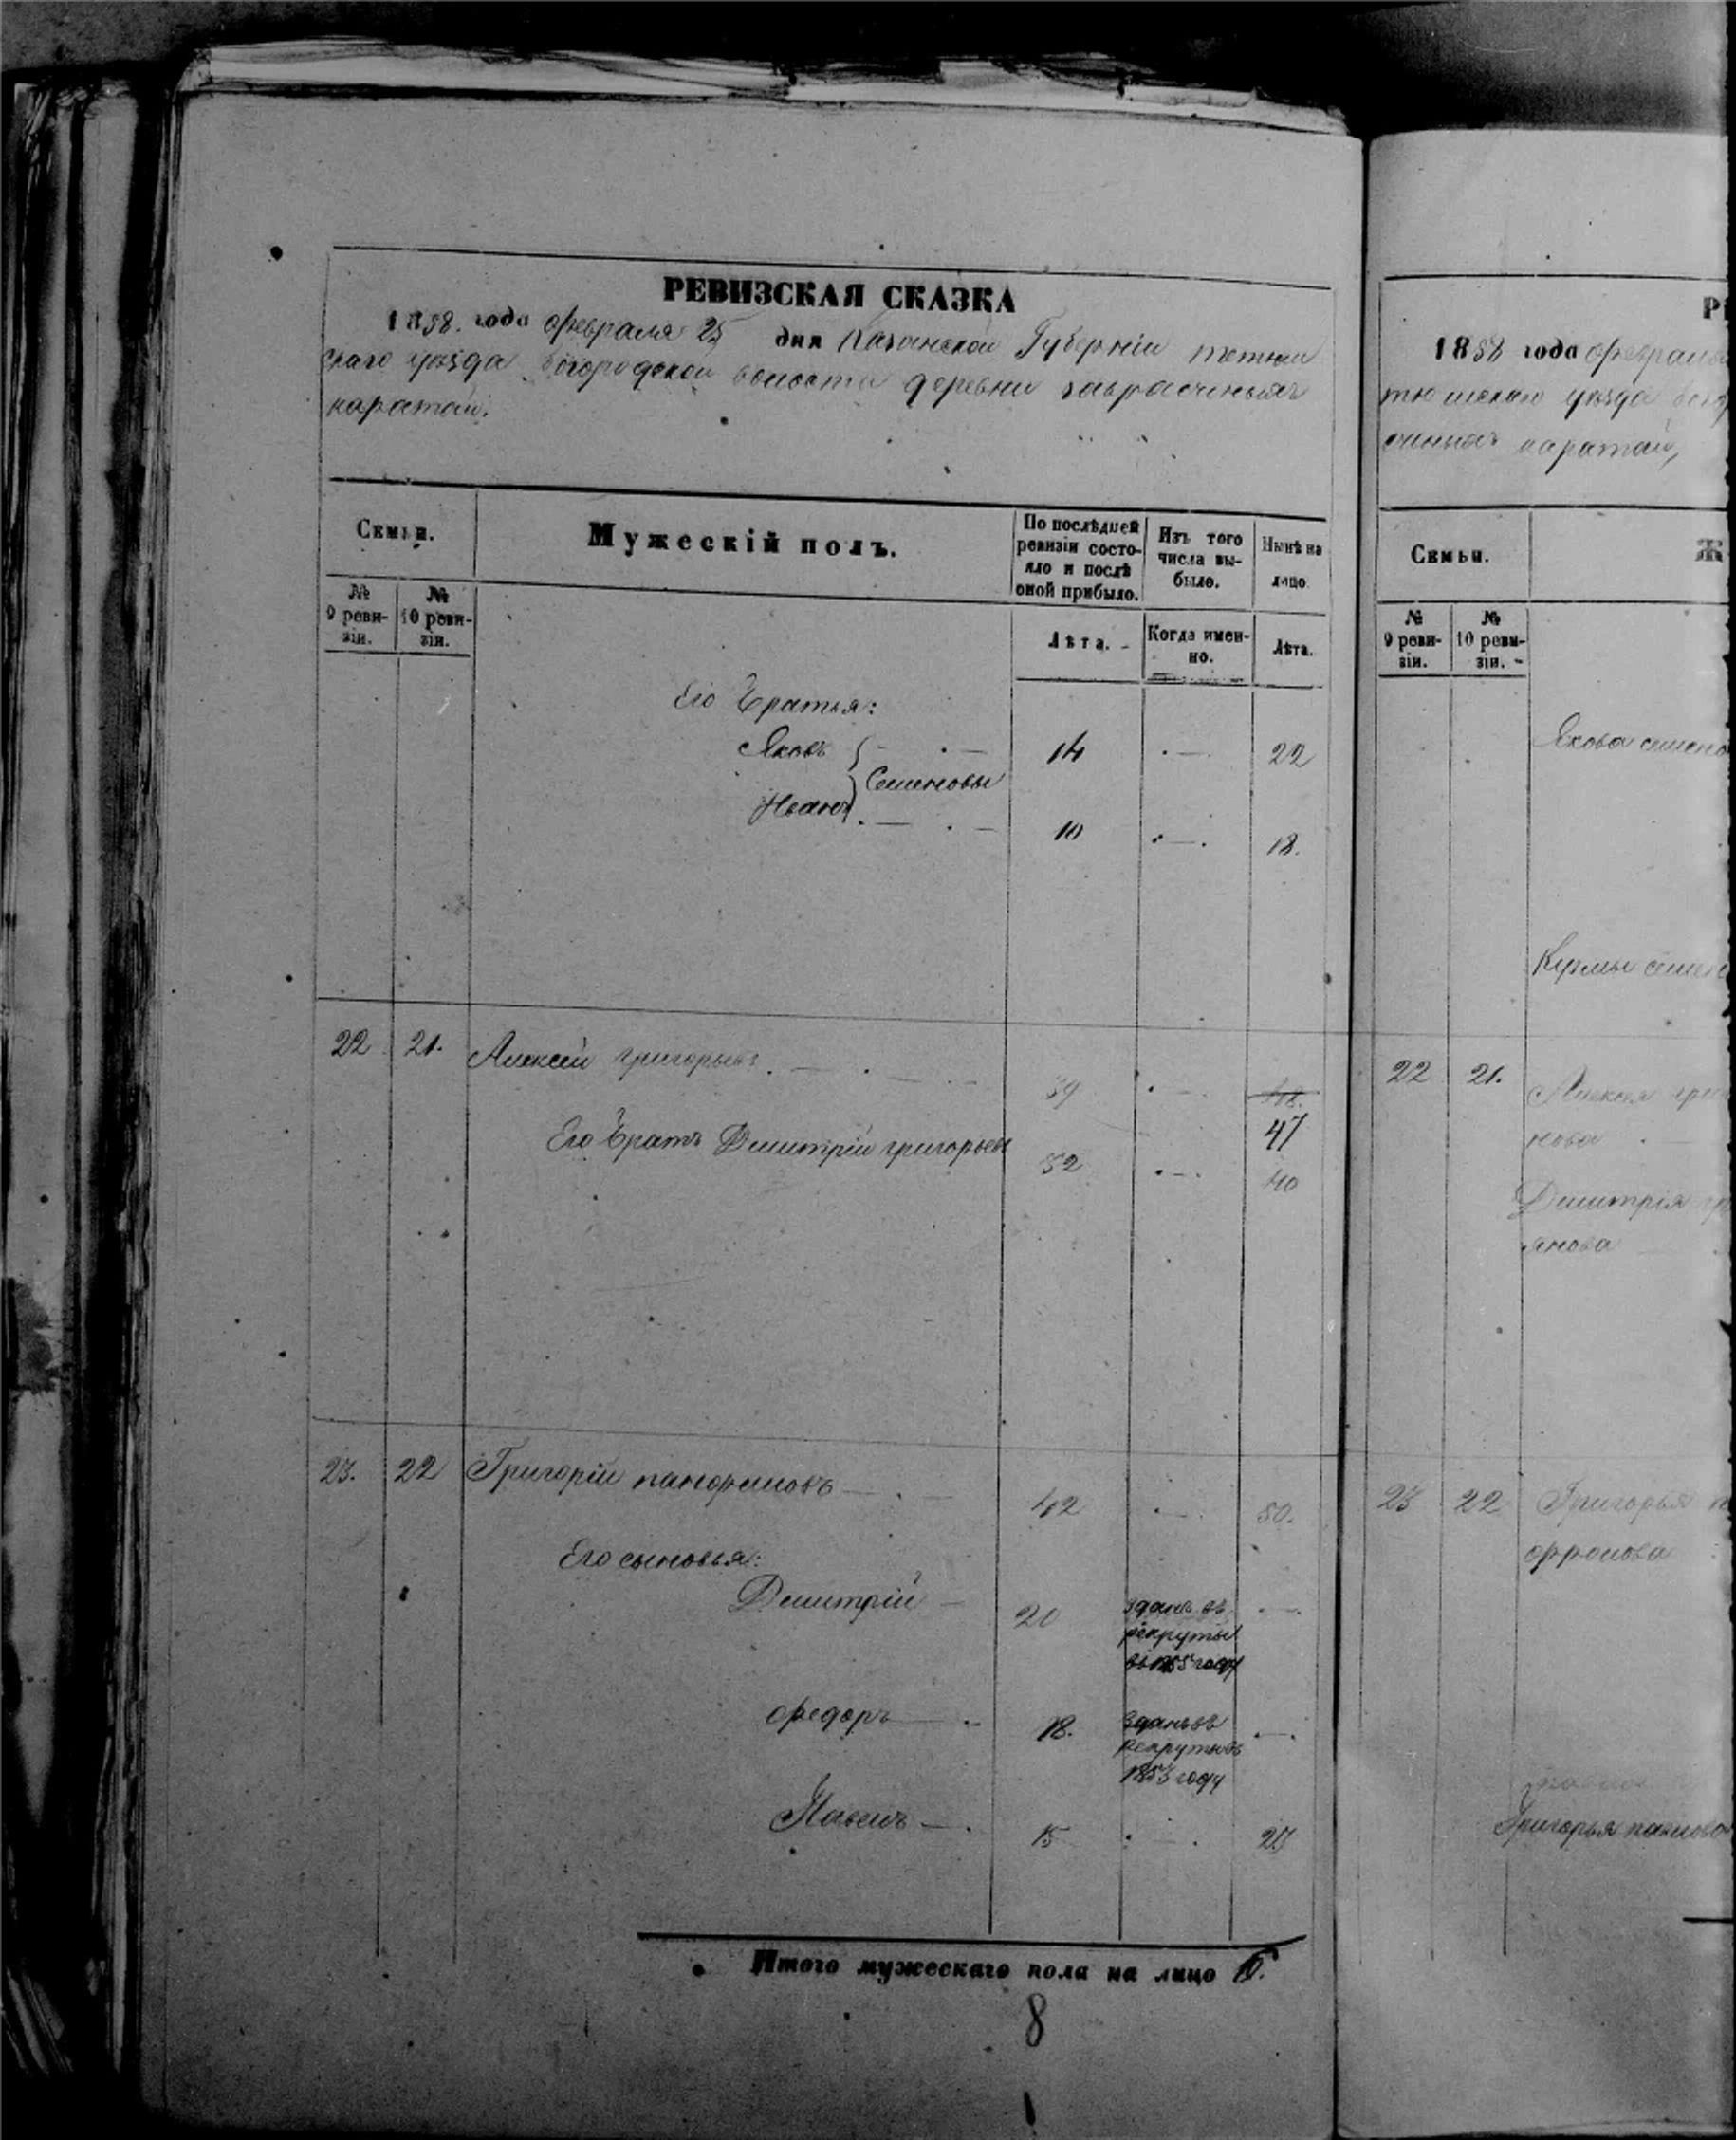 РЕВИЗСКАЯ СКАЗКА
1858. года февраля 25 дня Казанской Губерніи тетюш
скаго уѣзда богородской волости деревни заврасчиньях
каратай.
Семьи.
Мужескій полъ.
По послѣдней ревизіи состояло и послѣ оной прибыло.
Изъ того числа выбыло.
Нынѣ на лицо.
№ 9 ревизіи.
№ 10 ревизіи.
Лѣта.
Когда именно.
Лѣта.
Его братья:
Яковъ 14 22
Семеновы
Иванъ 10 18.
22 21. Алексѣй григорьевъ 39 48.
47
Его братъ Дмитрій григорьевъ 32 40
23. 22 Григорій панфиловъ 42 50.
Его сыновья:
Дмитрій 20 зданъ въ
рекруты
въ 1855 году
Федоръ 18. зданъ въ
рекруты въ
1853 году
Павелъ 15 23
Итого мужескаго пола на лицо
8
РЕ
1858 года февраля
тюшскаго уѣзда бого
чиньях каратай,
Семьи.
Ж
№ 9 ревизіи.
№ 10 ревизіи.
Якова семено
Кузмы семено
22 21. Алексея григ
нова
Дмитрія гр
янова
23 22 Григорья п
офролова
Григорья